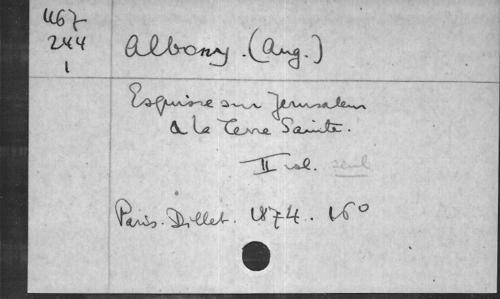 467
244
1
Albony. (Aug.)
Esquisse sur Jerusalem
& la Terre Sainte.
II vol. seul
Paris. Dillet. 1874. 16º